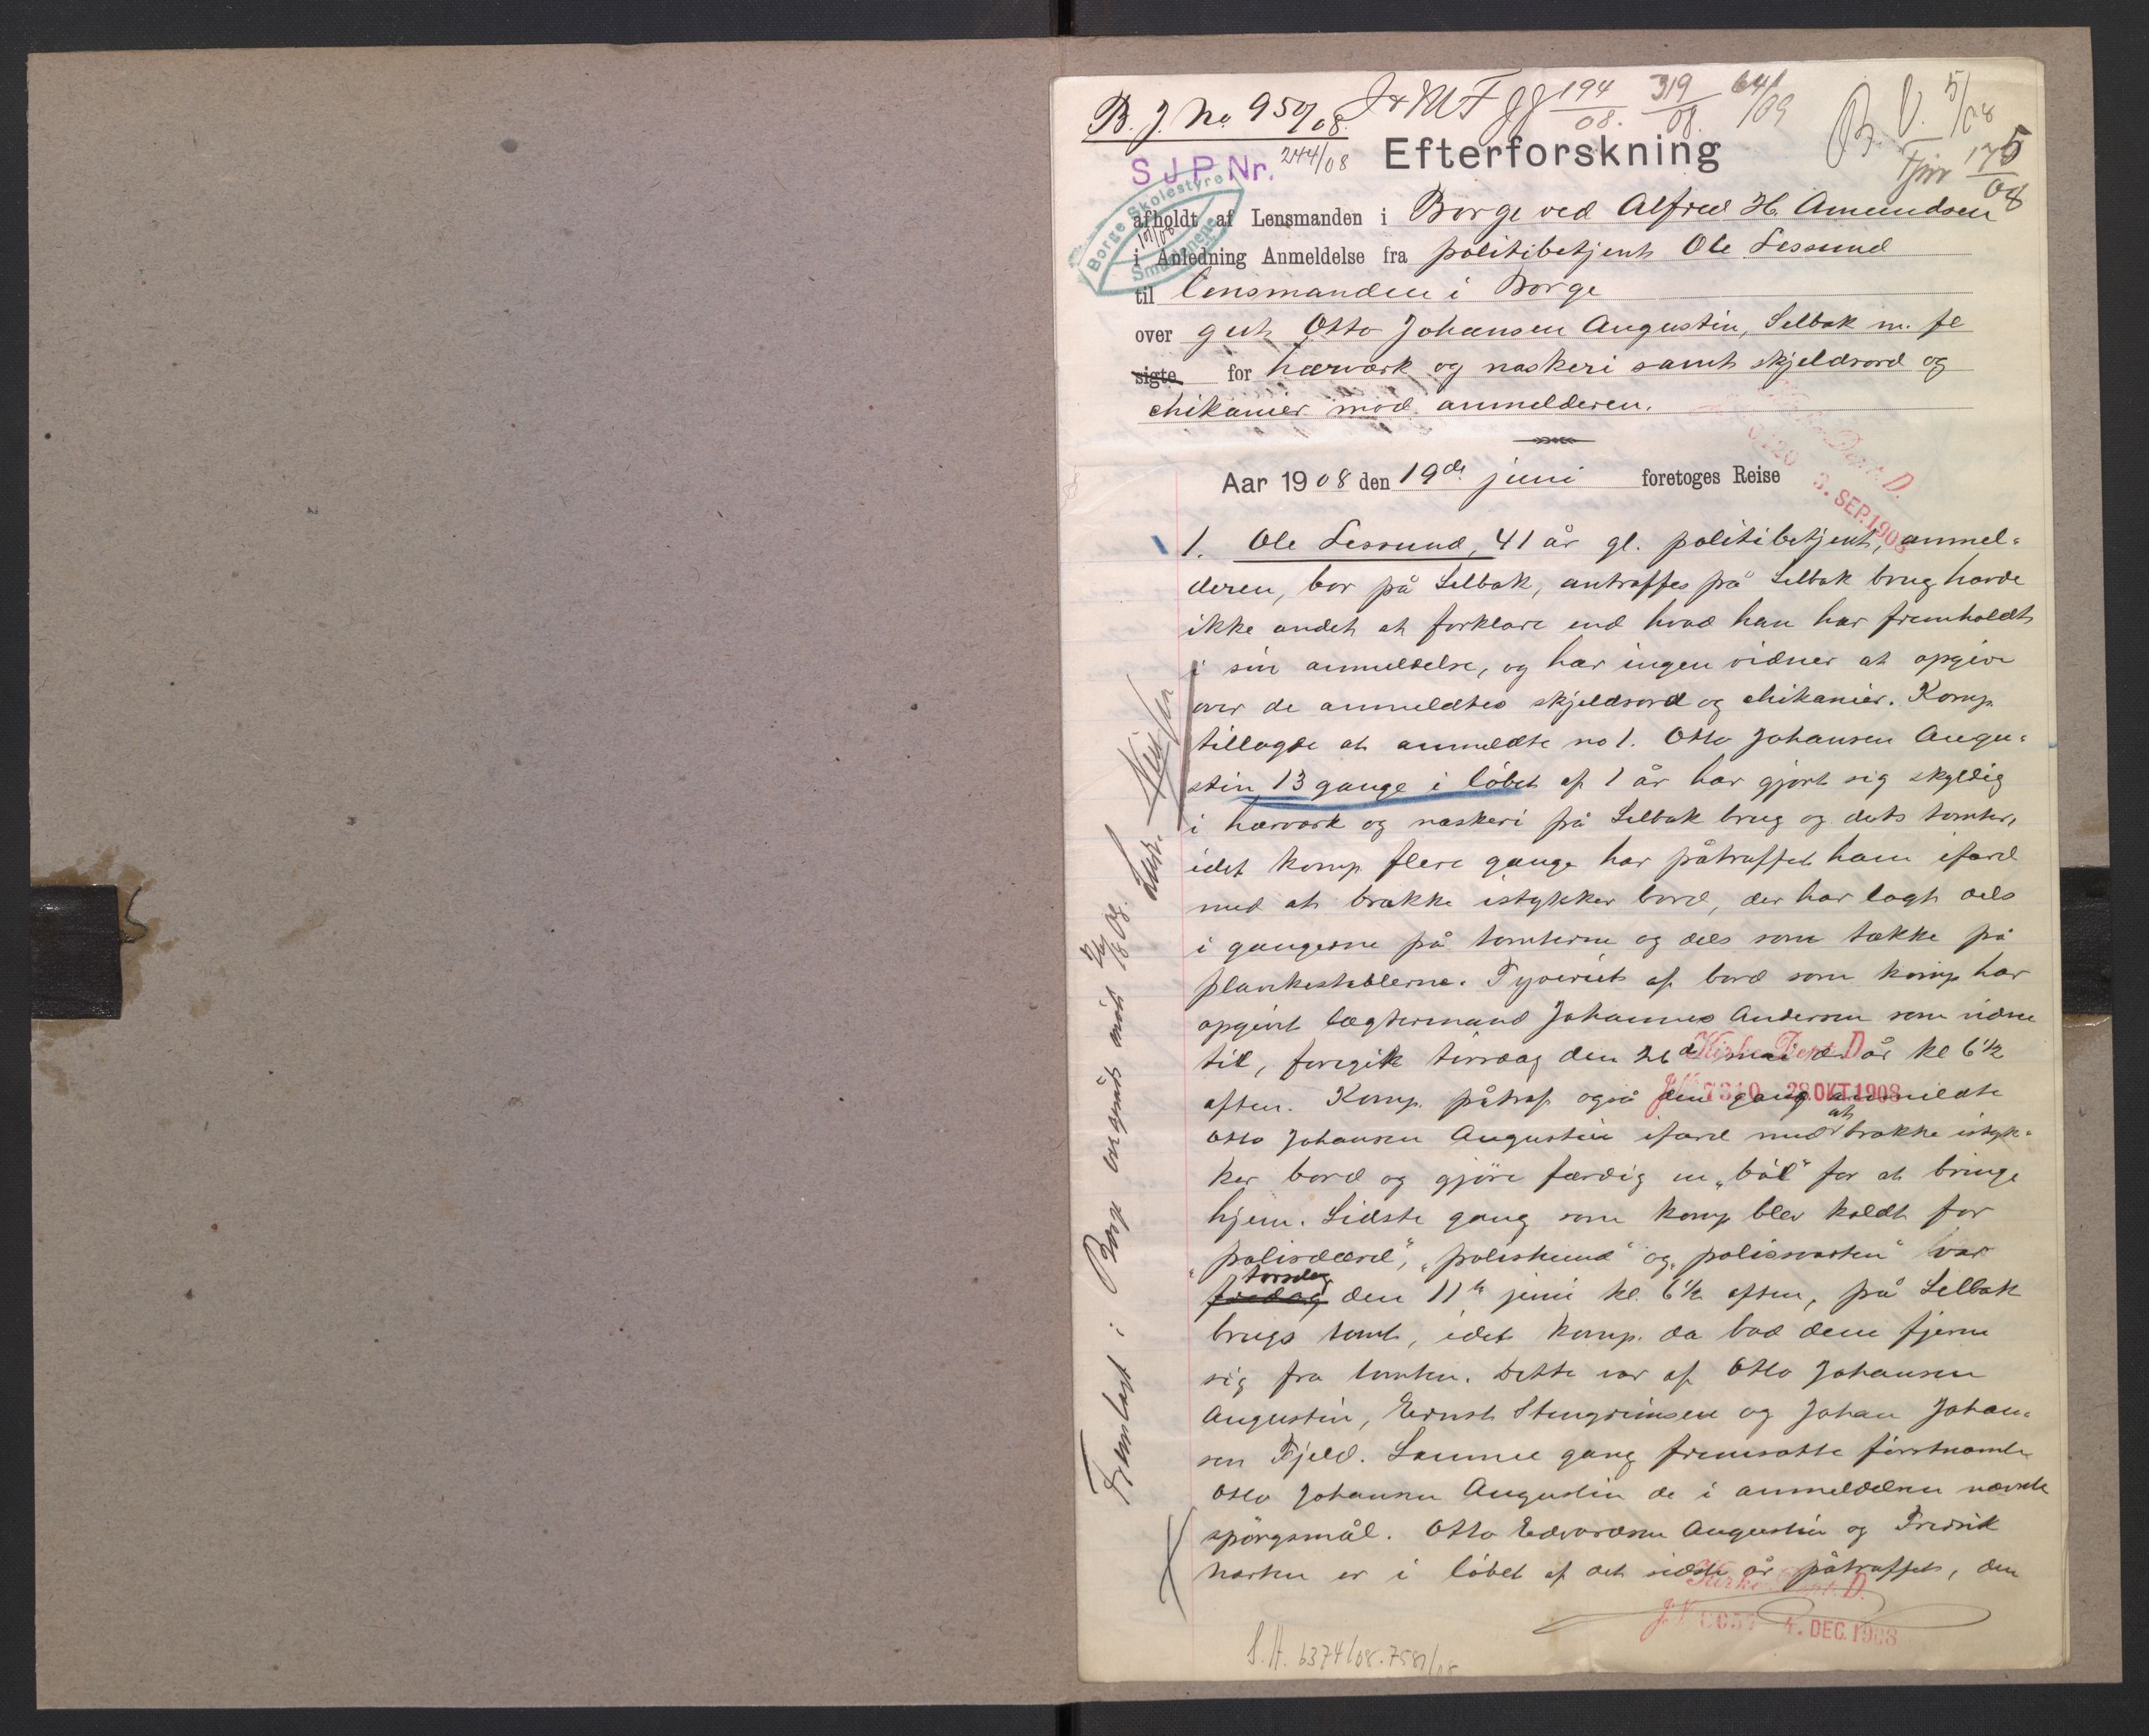 B. J. No. 950/08.
194/08. 319/08. 641/09
B. V. 5/08
175/08
S J P Nr. 244/08
Efterforskning
Borge Skolestyre
Smaalenene
afholdt af Lensmanden i Borge ved Alfred H. Amundsen
i Anledning Anmeldelse fra politibetjent Ole Lessund
til lensmanden i Borge
over gut Otto Johansen Augustin, Selbak m. fl
sigte for hærværk og naskeri samt skjeldsord og
chikanier mod anmelderen.
Aar 1908 den 19de juni foretoges Reise
3. SEP. 1908
1. Ole Lessund, 41 år gl. politibetjent, anmel-
deren, bor på Selbak, antraffes på Selbak brug havde
ikke andet at forklare end hvad han har fremholdt
i sin anmeldelse, og har ingen vidner at opgive
over de anmeldtes skjeldsord og chikanier. Komp.
tillagde at anmeldte no 1. Otto Johansen Augu-
stin 13 gange i løbet af 1 år har gjort sig skyldig
i hærværk og naskeri på Selbak brug og dets tomter,
idet komp flere gange har påtruffet ham ifærd
med at brække istykker bord, der har lagt dels
i gangerne på tomterne og dels som tække på
plankestablerne. Tyveriet af bord som komp har
opgivet lægtermand Johannes Andersen som vidne
til, foregik tirsdag den 26de mai d. år kl 6½
Kirke Dept. D
aften. Komp. påtraf også den gang anmeldte
28 OKT 1908
Otto Johansen Augustin ifærd med at brække istyk-
ker bord og gjøre færdig en „bòl" for at bringe
hjem. Sidste gang som komp blev kaldt for
„polisdævel", „polishund" og „polissvarten" var
torsdag
fredag den 11te juni kl. 6½ aften, på Selbak
brugs tomt, idet komp. da bad dem fjerne
sig fra tomten. Dette var af Otto Johansen
Augustin, Ernst Stengrimsen og Johan Johan-
sen Fjeld. Samme gang fremsatte førstnævnte
Otto Johansen Augustin de i anmeldelsen nævnte
spørgsmål. Otto Edvardsen Augustin og Fredrik
er i løbet af det sidste år påtruffet, den
Kirke Dept. D.
4. DEC. 1908
S. A. 6374/08. 7581/08
Fremlagt i Borge